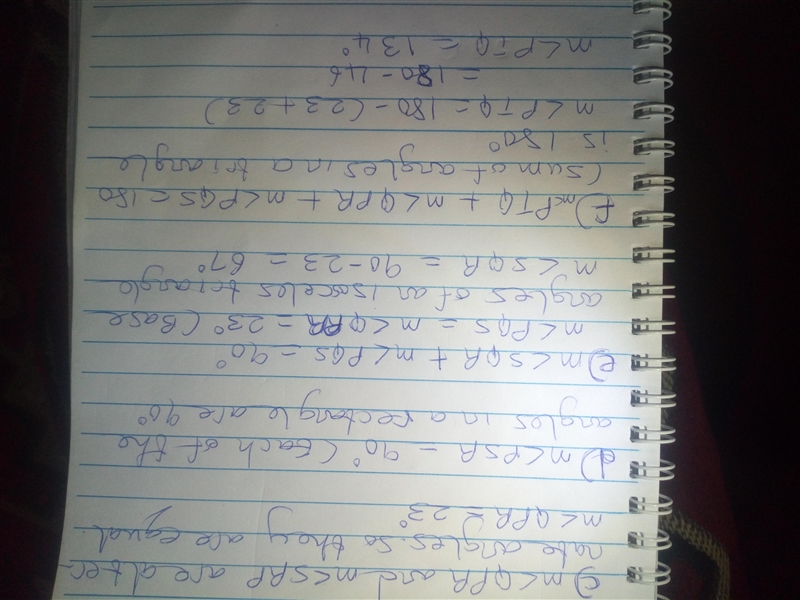 c) m<QPR and m<SRP are alter-
nate angles. so they are equal.
m<QPR = 23°
d) m<PSR = 90° (Each of the
angles in a rectangle are 90°
e) m<SQR + m<PQS = 90°
m<PQS = m<QPR = 23° (Base
angles of an isosceles triangle
m<SQR = 90-23 = 67°
f) m<PTQ + m<QPR + m<PQS = 180
(sum of angles in a triangle
is 180°
m<PTQ = 180 - (23+23)
= 180 - 46
m<PTQ = 134°